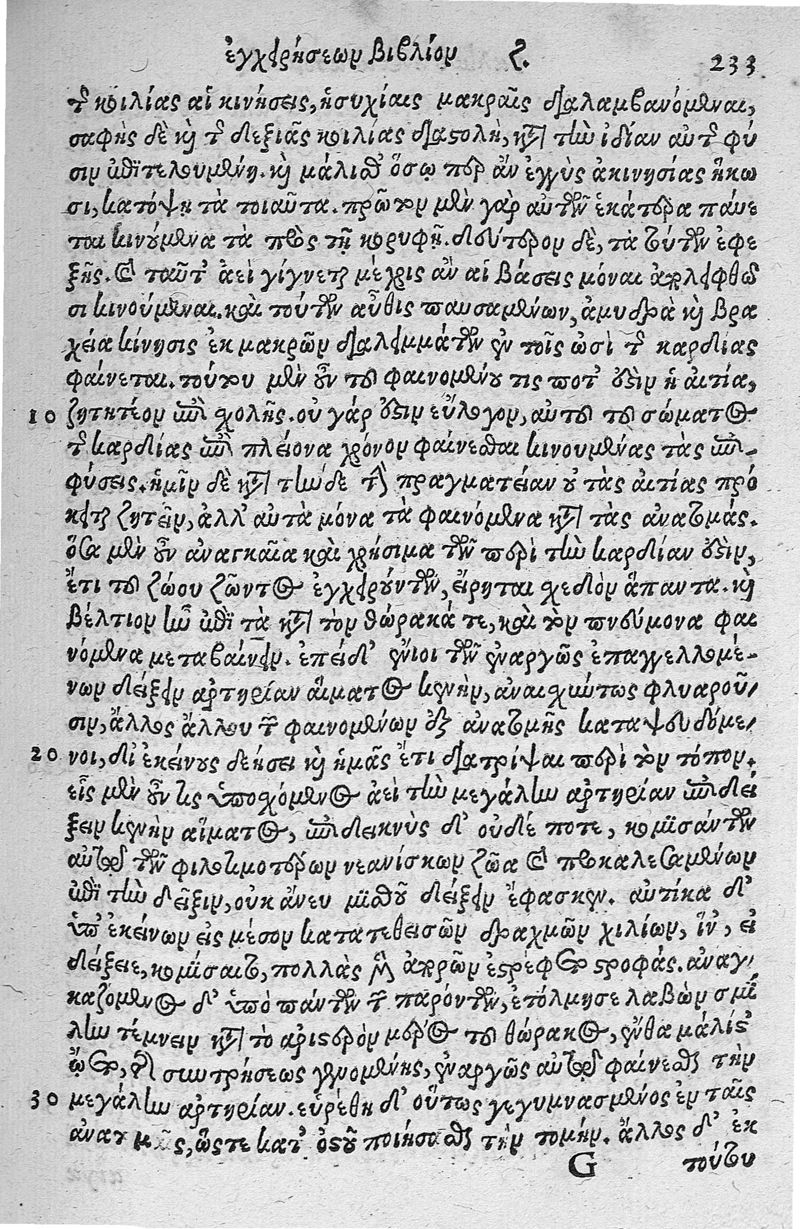 ἐγχειρήσεων βιβλίον ζ. 233
τῆς κοιλίας αἱ κινήσεις, ἡσυχίαις μακραῖς διαλαμβανόμεναι,
σαφὴς δὲ καὶ τῆς δεξιᾶς κοιλίας διαστολὴ, κατὰ τὴν ἰδίαν αὐτῆς φύ
σιν ἐπιτελουμένη. καὶ μάλισθ' ὅσῳ περ ἂν ἐγγὺς ἀκινησίας ἥκω
σι, κατόψῃ τὰ τοιαῦτα. πρῶτον μὲν γὰρ αὐτῶν ἑκάτερα παύε
ται κινούμενα τὰ πρὸς τῇ κορυφῇ. δεύτερον δὲ, τὰ τούτων ἐφε
ξῆς. καὶ ταῦτ' ἀεὶ γίγνεται μέχρις ἂν αἱ βάσεις μόναι ἀπολειφθῶ
σι κινούμεναι. καὶ τούτων αὖθις παυσαμένων, ἀμυδρὰ καὶ βρα
χεία κίνησις ἐκ μακρῶν διαλειμμάτων ἐν τοῖς ὠσὶ τῆς καρδίας
φαίνεται. τούτου μὲν οὖν τοῦ φαινομένου τις ποτ' ἐστὶν ἡ αἰτία,
10 ζητητέον ἐπὶ σχολῆς. οὐ γάρ ἐστιν εὔλογον, αὐτοῦ τοῦ σώματος
τῆς καρδίας ἐπὶ πλείονα χρόνον φαίνεσθαι κινουμένας τὰς ἐπι-
φύσεις. ἡμῖν δὲ κατὰ τήνδε τὴν πραγματείαν οὐ τὰς αἰτίας πρό
κειται ζητεῖν, ἀλλ' αὐτὰ μόνα τὰ φαινόμενα κατὰ τὰς ἀνατομάς.
ὅσα μὲν οὖν ἀναγκαῖα καὶ χρήσιμα τῶν περὶ τὴν καρδίαν ἐστὶν,
ἔτι τοῦ ζώου ζῶντος ἐγχειρούντων, εἴρηται σχεδὸν ἅπαντα. καὶ
βέλτιον ἦν ἐπὶ τὰ κατὰ τὸν θώρακά τε, καὶ τὸν πνεύμονα φαι
νόμενα μεταβαίνειν. ἐπεὶ δ' ἔνιοι τῶν ἐναργῶς ἐπαγγελλομέ-
νων δείξειν ἀρτηρίαν αἵματος κενὴν, ἀναισχύντως φλυαροῦ
σιν, ἄλλος ἄλλου τῶν φαινομένων ἐξ ἀνατομῆς καταψευδόμε
20 νοι, δι' ἐκείνους δεήσει καὶ ἡμᾶς ἔτι διατρίψαι περὶ τὸν τόπον.
εἷς μὲν οὖν τις ὑποσχόμενος ἀεὶ τὴν μεγάλην ἀρτηρίαν ἐπιδεί
ξειν κενὴν αἵματος, ἐπιδεικνὺς δ' οὐδέ ποτε, κομισάντων
αὐτῷ τῶν φιλοτιμοτέρων νεανίσκων ζῶα καὶ προκαλεσαμένων
ἐπὶ τὴν δεῖξιν, οὐκ ἄνευ μισθοῦ δείξειν ἔφασκεν. αὐτίκα δ'
ὑπ' ἐκείνων εἰς μέσον κατατεθεισῶν δραχμῶν χιλίων, ἵν', εἰ
δείξειε, κομίσαιτο, πολλὰς μὲν ἀπορῶν ἐστρέφετο στροφάς. ἀναγ
καζόμενος δ' ὑπὸ πάντων τῶν παρόντων, ἐτόλμησε λαβὼν σμί
λην τέμνειν κατὰ τὸ ἀριστερὸν μέρος τοῦ θώρακος, ἔνθα μάλιστ'
ᾤετο, τῆς συντρήσεως γενομένης, ἐναργῶς αὐτῷ φαίνεσθαι τὴν
30 μεγάλην ἀρτηρίαν. εὑρέθη δ' οὕτως γεγυμνασμένος ἐν ταῖς
ἀνατομαῖς, ὥστε κατ' ὀστοῦ ποιήσασθαι τὴν τομήν. ἄλλος δ' ἐκ
G τούτου